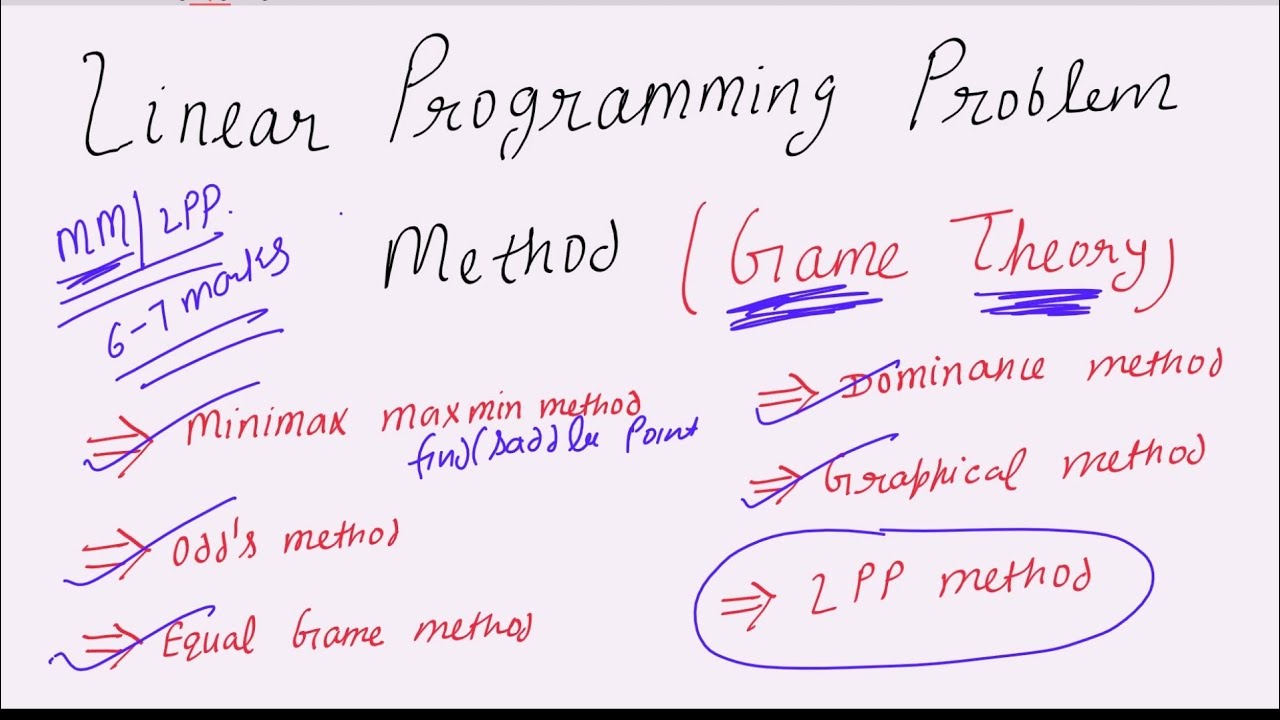 Linear Programming Problem
MM | LPP.
6-7 marks
Method (Game Theory)
⇒ Minimax maxmin method
find (saddle Point
⇒ Odd's method
⇒ Equal Game method
⇒ Dominance method
⇒ Graphical method
⇒ LPP method